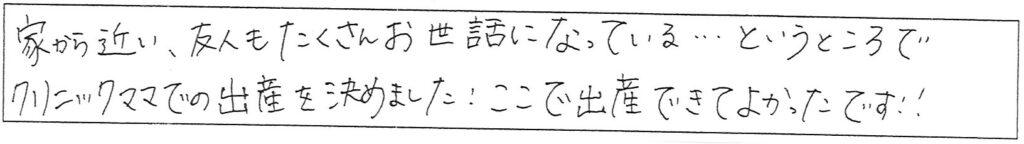 家から近い、友人もたくさんお世話になっている…というところで
クリニックママでの出産を決めました！ここで出産できてよかったです!!